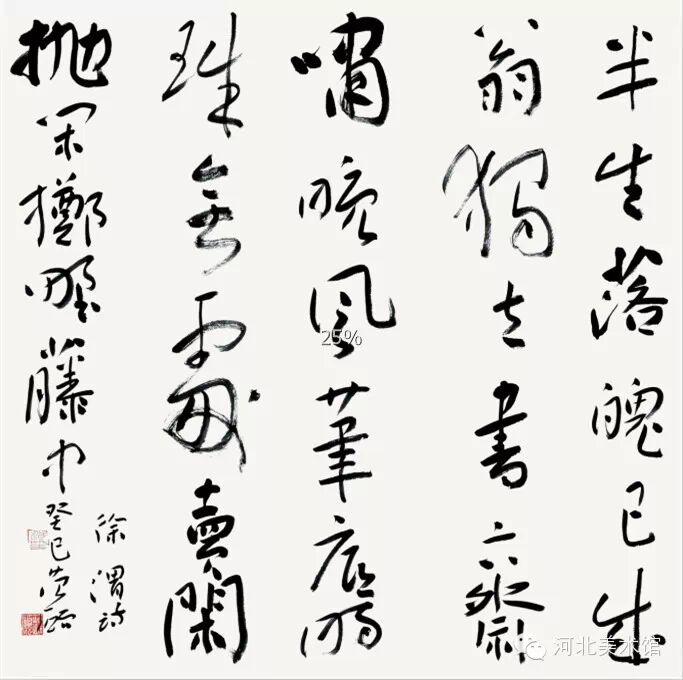 半生落魄已成
翁獨立書齋
嘯晚風筆底明
珠無處賣閑
抛閑擲野藤中
徐渭詩
癸巳
25%
河北美术馆